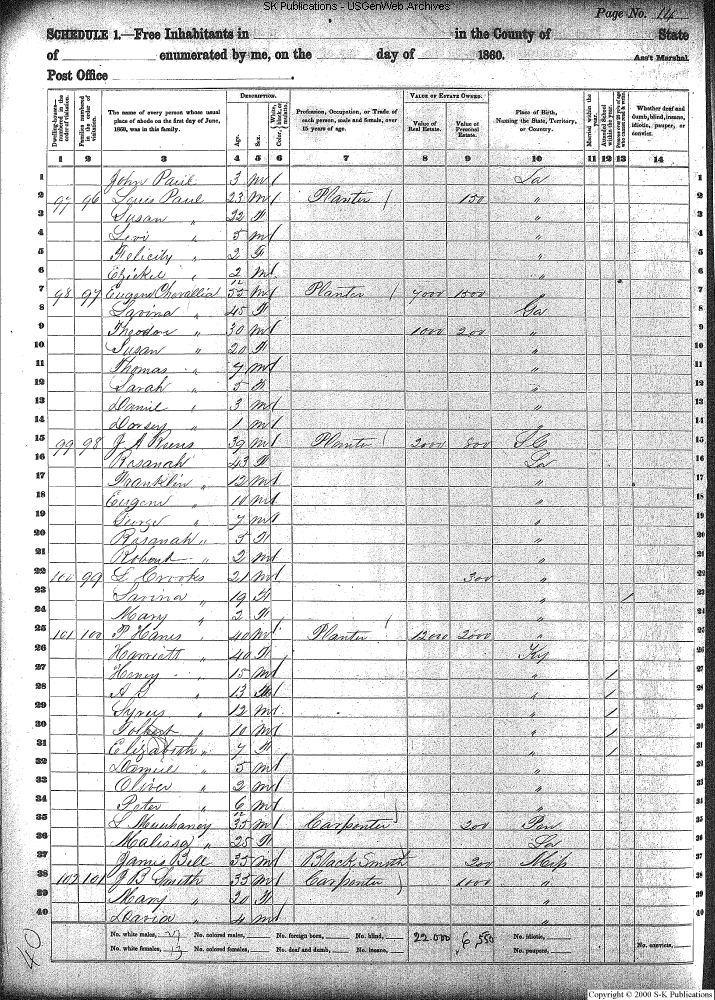 SK Publications - USGenWeb Archives
Page No. 14
SCHEDULE 1.—Free Inhabitants in in the County of State
of enumerated by me, on the day of 1860. Ass't Marshal.
Post Office .
Dwelling-houses— numbered in the order of visitation.
Families numbered in the order of visitation.
The name of every person whose usual place of abode on the first day of June, 1860, was in this family.
DESCRIPTION.
Age.
Sex.
Color, White, black, or mulatto.
Profession, Occupation, or Trade of each person, male and female, over 15 years of age.
VALUE OF ESTATE OWNED.
Value of Real Estate.
Value of Personal Estate.
Place of Birth, Naming the State, Territory, or Country.
Married within the year.
Attended School within the year.
Persons over 20 y'rs of age who cannot read & write.
Whether deaf and dumb, blind, insane, idiotic, pauper, or convict.
1 2 3 4 5 6 7 8 9 10 11 12 13 14
1 John Paul 3 m / La 1
2 97 96 Louis Paul 23 m / Planter 150 " 2
3 Susan " 22 F " 3
4 Levi " 5 m / " 4
5 Felicity " 2 F " 5
6 " 2/12 m / " 6
7 98 97 Eugene Chevallia 55 m / Planter 7000 1500 " 7
8 Lavina " 45 F Ga 8
9 Theodor " 30 m / 1000 200 " 9
10 Susan " 20 F " 10
11 Thomas " 7 m / " 11
12 Sarah " 5 F " 12
13 Daniel " 3 m / " 13
14 Dorsey " 1 m / " 14
15 99 98 J A 39 m / Planter 2000 800 SC 15
16 Rosanah " 43 F La 16
17 Franklin " 12 m / " 17
18 Eugene " 10 m / " 18
19 George " 7 m / " 19
20 Rosanah " 5 F " 20
21 Robert " 2 m / " 21
22 100 99 L Crooks 21 m / 300 " 22
23 Lavina " 19 F " / 23
24 Mary " 2 F " 24
25 101 100 P Hanes 40 m / Planter 12000 2000 " 25
26 Harriett " 40 F Ky 26
27 Henry " 15 m / " / 27
28 A " 13 m / " / 28
29 Syrus " 12 m / " / 29
30 Tolbert " 10 m / " / 30
31 Elizabeth " 7 F " / 31
32 " 5 m / " 32
33 Oliver " 2 m / " 33
34 Peter " 6/12 m / " 34
35 L 35 m / Carpenter 200 Pen 35
36 Malissa " 25 F La 36
37 James Bell 35 m / Black Smith 200 Mip 37
38 102 101 J B Smith 35 m / Carpenter 1000 " 38
39 Mary " 20 F " 39
40 " 4 m / " 40
No. white males, 27 No. colored males, No. foreign born, No. blind, 22.000 6,550 No. idiotic,
No. white females, 13 No. colored females, No. deaf and dumb, No. insane, No. paupers, No. convicts,
40
Copyright © 2000 S-K Publications